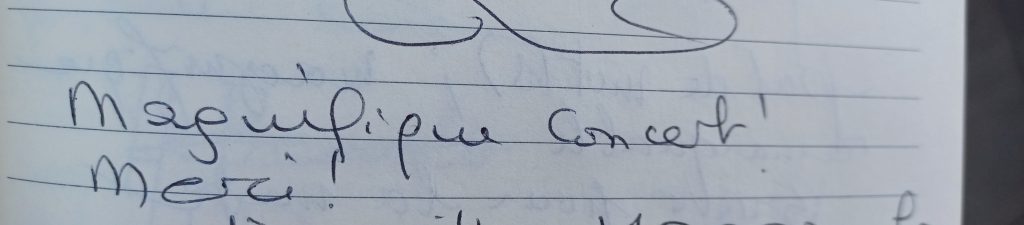 Magnifique concert!
Merci!